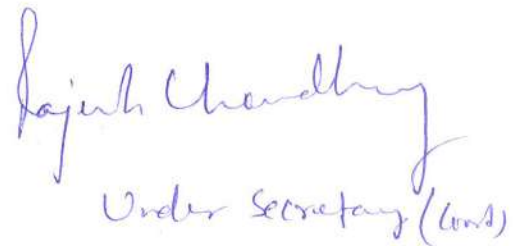 Rajesh Chaudhury
Under Secretary (